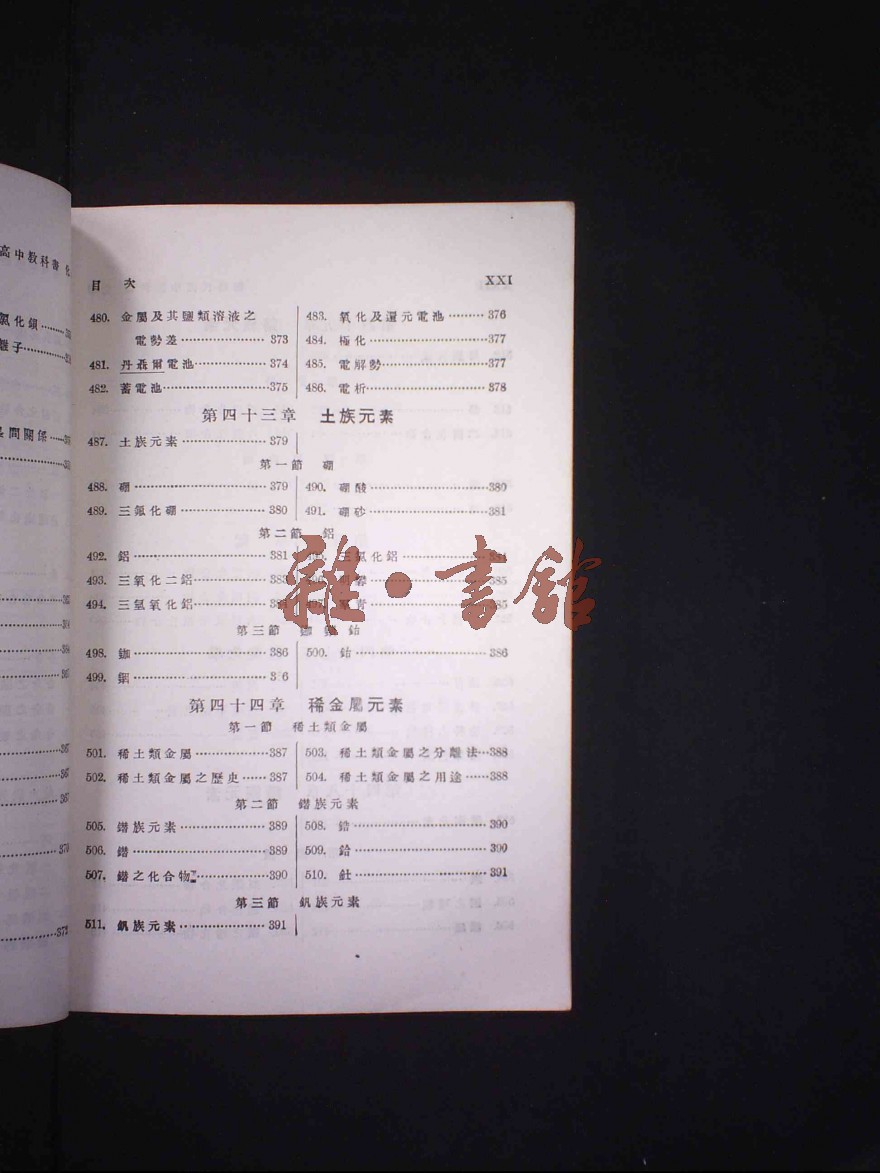 高中教科書 化
氯化鋇
離子
間關係
目 次
XXI
480. 金屬及其鹽類溶液之
電勢差 373
481. 丹聶爾電池 374
482. 蓄電池 375
483. 氧化及還元電池 376
484. 極化 377
485. 電解勢 377
486. 電析 378
第四十三章 土族元素
487. 土族元素 379
第一節 硼
488. 硼 379
489. 三氟化硼 380
490. 硼酸 380
491. 硼砂 381
第二節 鋁
492. 鋁 381
493. 三氧化二鋁 383
494. 三氫氧化鋁
三氯化鋁
385
青 385
雜·書館
第三節 鎵 銦 鉈
498. 鎵 386
499. 銦 3 6
500. 鉈 386
第四十四章 稀金屬元素
第一節 稀土類金屬
501. 稀土類金屬 387
502. 稀土類金屬之歷史 387
503. 稀土類金屬之分離法 388
504. 稀土類金屬之用途 388
第二節 鍇族元素
505. 鍇族元素 389
506. 鍇 389
507. 鍇之化合物 390
508. 鋯 390
509. 鉿 390
510. 釷 391
第三節 釩族元素
511. 釩族元素 391